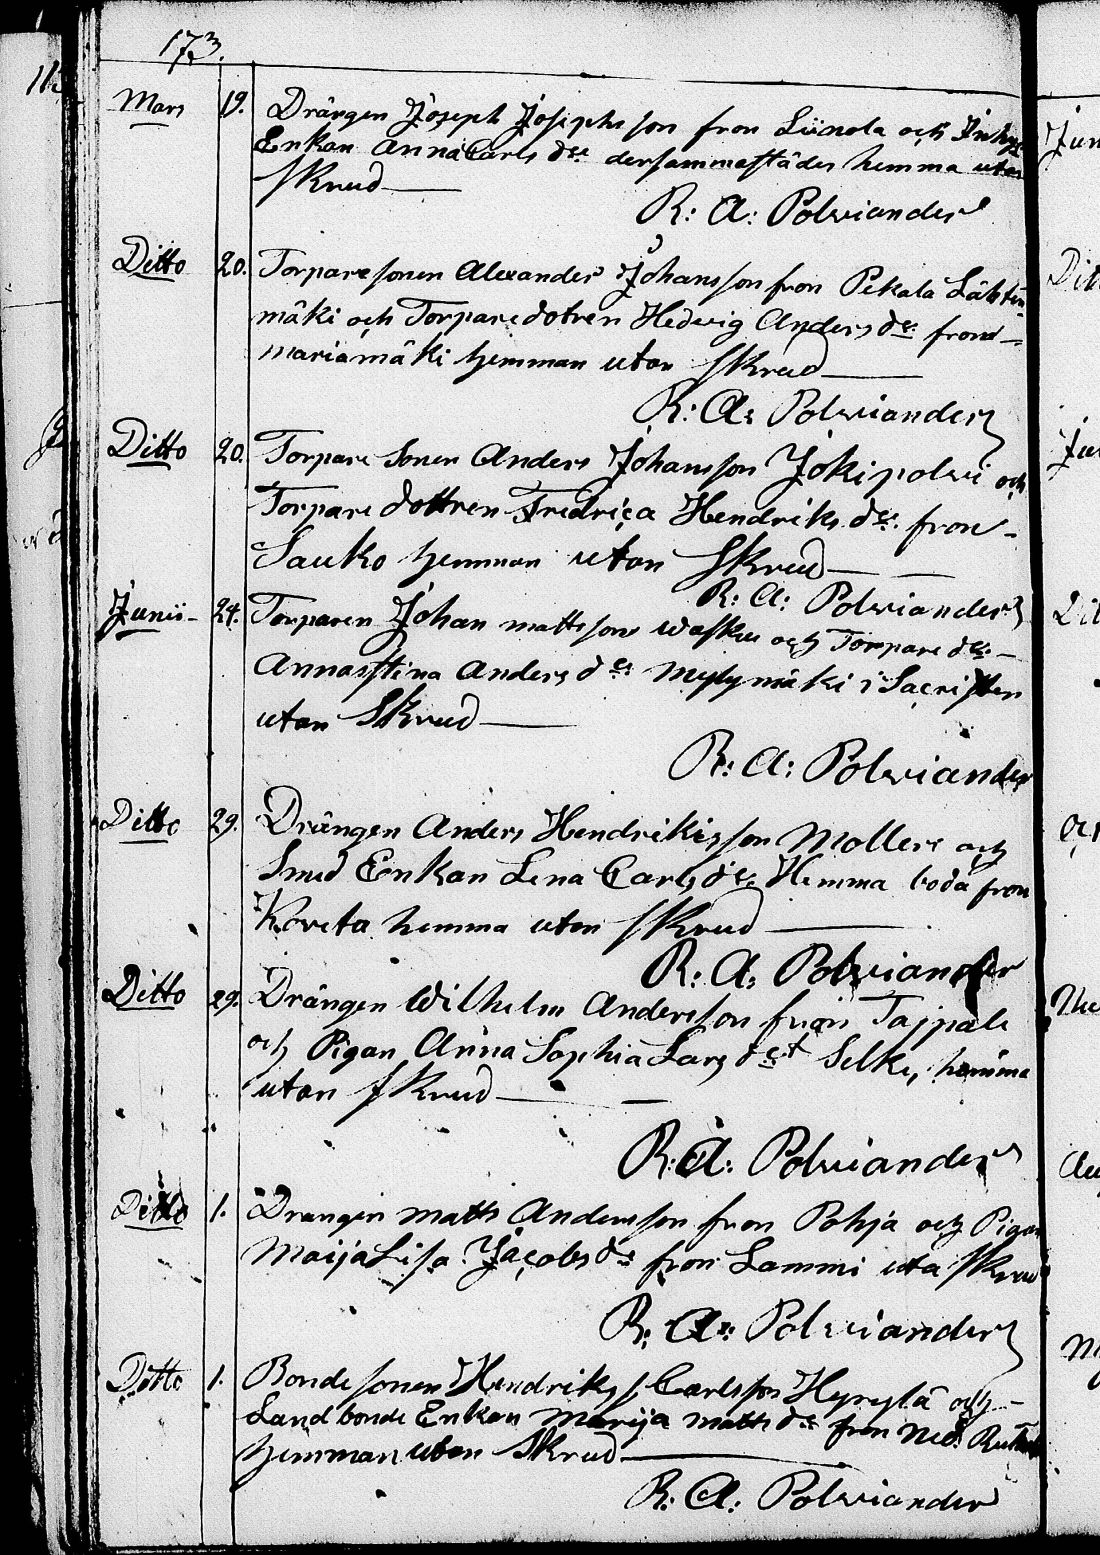 173.
Mars 19. Drängen Joseph Josephsson fron Liinola och
Enkan Anna Carls dr dersammastädes hemma utan
Skrud
R: A: Polviander
Ditto 20. Torparesonen Alexander Johansson fron Pekala
mäki och Torparedotren Hedvig Anders dr fron
mariamäki hemman utan Skrud
R: A: Polviander
Ditto 20. Torpare Sonen Anders Johansson Jokipolvi och
Torpare dottren Fredrica Hendriks dr fron
Sauko hemman utan Skrud
R: A: Polviander
Junii 24. Torparen Johan mattsson och Torpare dr
Annastina Anders dr i Sacristien
utan Skrud
R: A: Polviander
Ditto 29. Drängen Anders Hendrikisson Mollere och
Smed Enkan Lena Carls dr Hemma boda fron
Koveta hemma utan Skrud
R: A: Polviander
Ditto 29. Drängen Wilhelm Andersson fron Tajpale
och Pigan Anna Sophia Lars dr Selke, hemma
utan Skrud
R: A: Polviander
Ditto 1. Drangen matts Andersson fron Pohja och Pigan
Maija Lisa Jacobs dr fron Lammi uta Skrud
R: A: Polviander
Ditto 1. Bonde sonen Hendrik Carlsson Hyrylä och
Landbonde Enkan Marija matts dr fron Ned.
hemman utan Skrud
R: A: Polviander